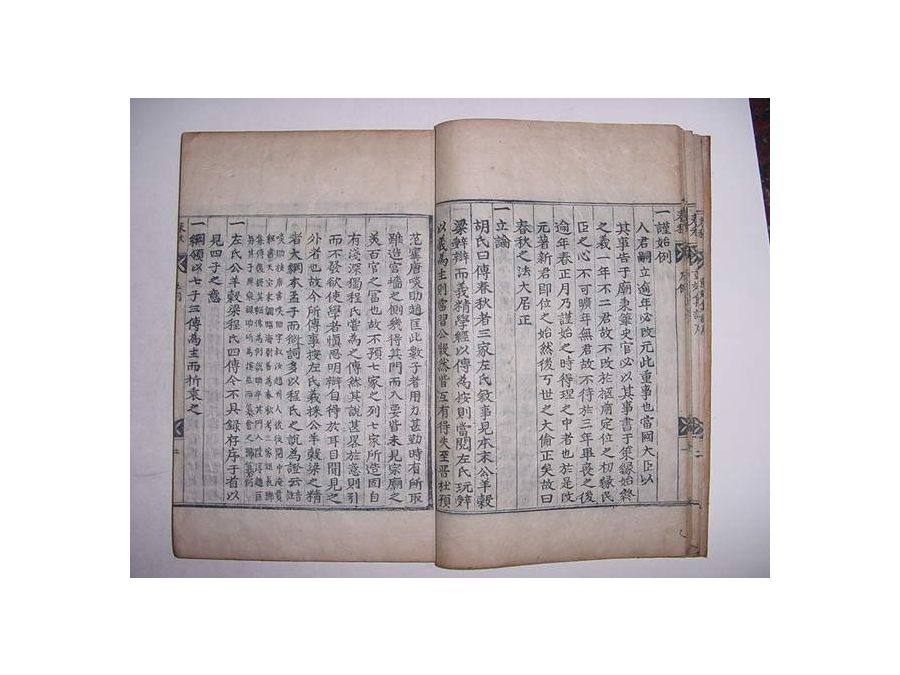 一謹始例
人君嗣立逾年必改元此重事也當國大臣以
其事告于廟秉筆史官必以其事書于策緣始終
之義一年不二君故不改於柩前定位之初緣民
臣之心不可曠年無君故不待於三年畢喪之後
逾年春正月乃謹始之時得理之中者也於是改
元著新君即位之始然後百世之大倫正矣故曰
春秋之法大居正
一立論
胡氏曰傳春秋者三家左氏敘事見本末公羊穀
梁辭辯而義精學經以傳為按則當閱左氏玩辭
以義為主則當習公穀然皆互有得失至晉杜預
范甯唐啖助趙匡此數子者用力甚勤時有所取
雖造宮牆之側幾得其門而入要皆未見宗廟之
美百官之富也故不預七家之列七家所造固自
有淺深獨程氏嘗為之傳然其說甚畧於意則引
而不發欲使學者慎思明辯自得於耳目聞見之
外者也故今所傳事按左氏義採公羊穀梁之精
者大綱本孟子而微詞多以程氏之說為證云
一左氏公羊穀梁程氏四傳今不具録存序于者以
見四子之意
一綱領以七子三傳為主而折衷之